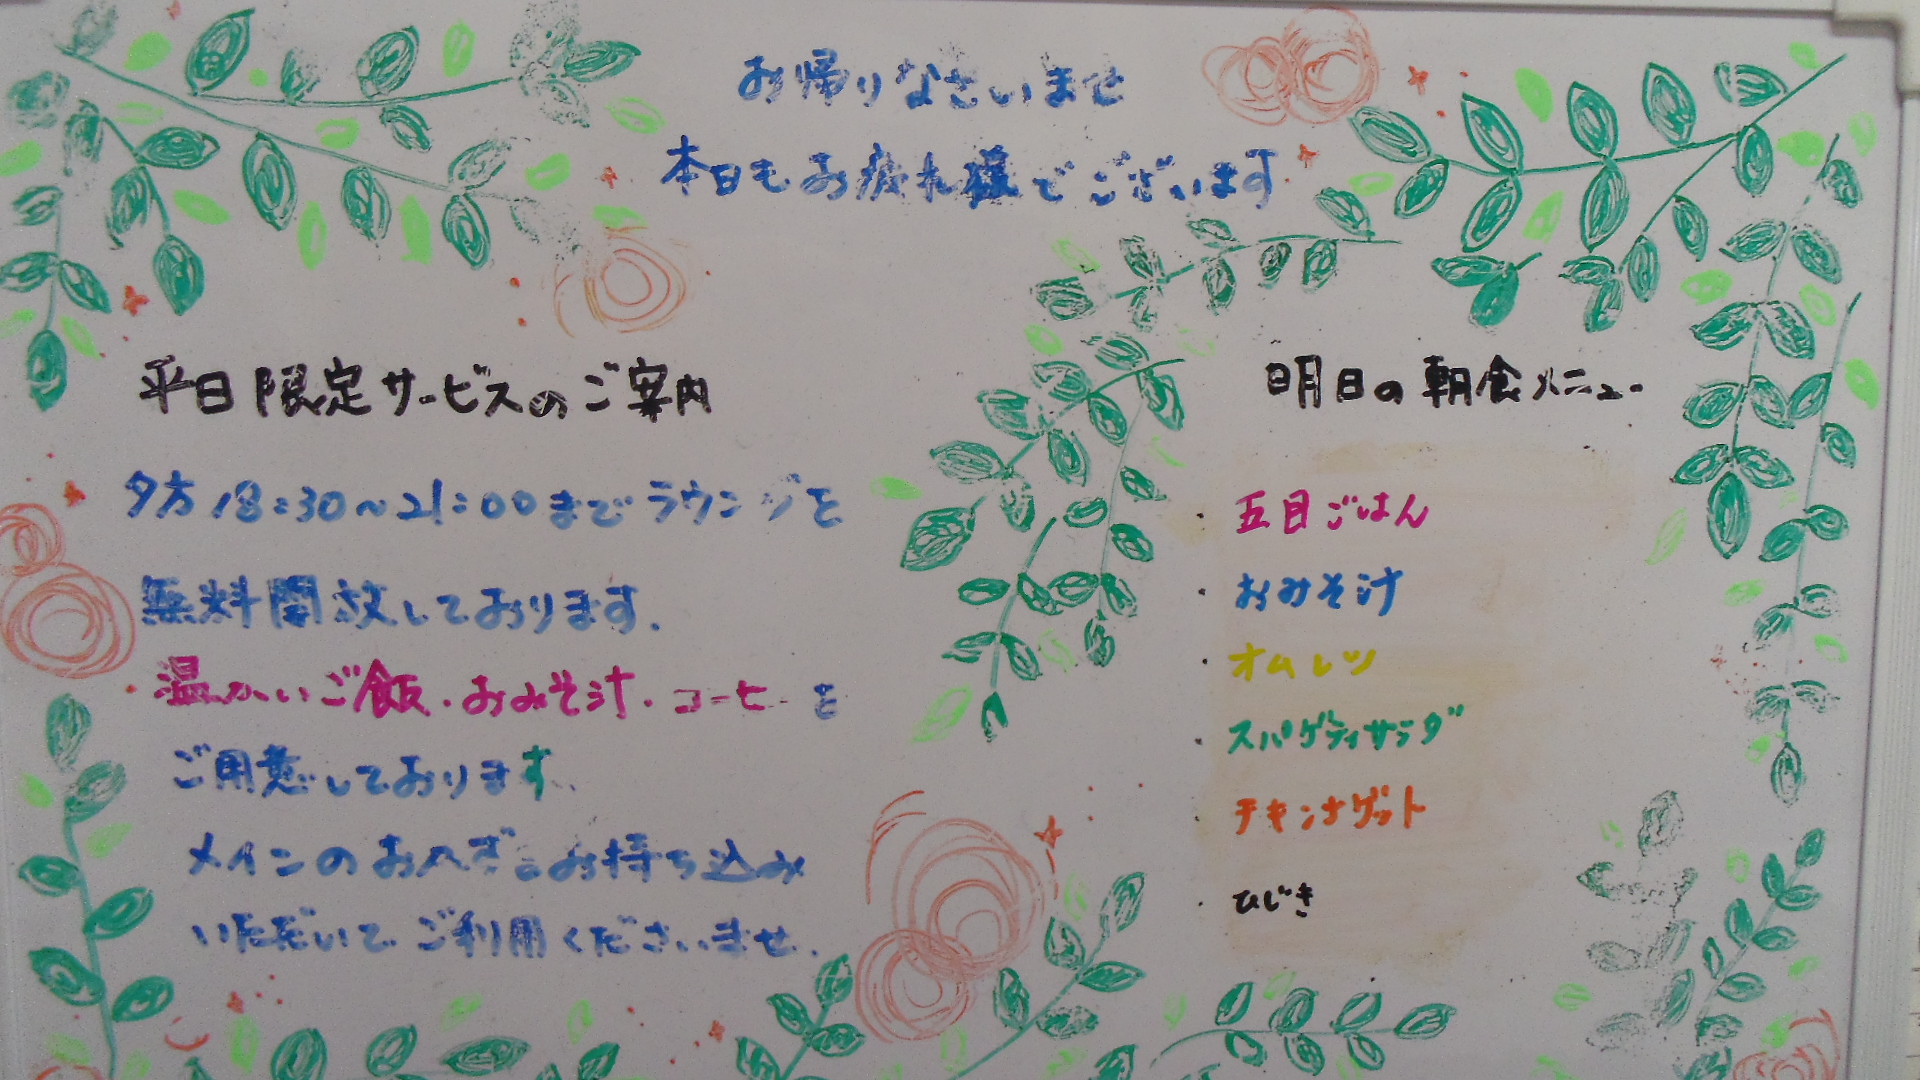 お帰りなさいませ
本日もお疲れ様でございます
平日限定サービスのご案内
夕方18:30～21:00までラウンジを
無料開放しております.
温かいご飯・おみそ汁・コーヒーを
ご用意しております、
メインのおかずをお持ち込み
いただいてご利用くださいませ.
明日の朝食メニュー
・五目ごはん
・おみそ汁
・オムレツ
・スパゲティサラダ
・チキンナゲット
・ひじき